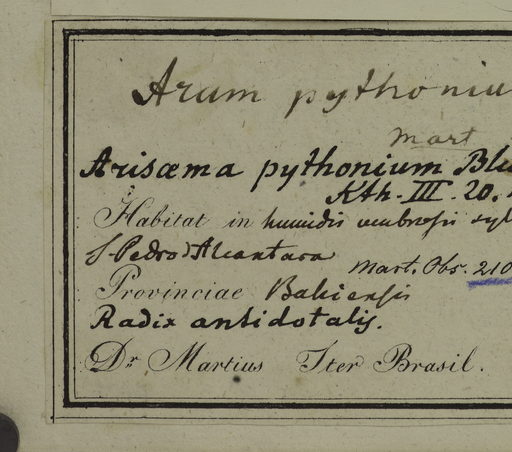 Arum pythoniu
Mart
Arisæma pythonium Blu
Kth. III. 20.
Habitat in humidis umbrosis syl
S. Pedro d'Alcantara
Mart. Obs. 210
Provinciae Bahiensis
Radix antidotalis.
Dr. Martius Iter Brasil.